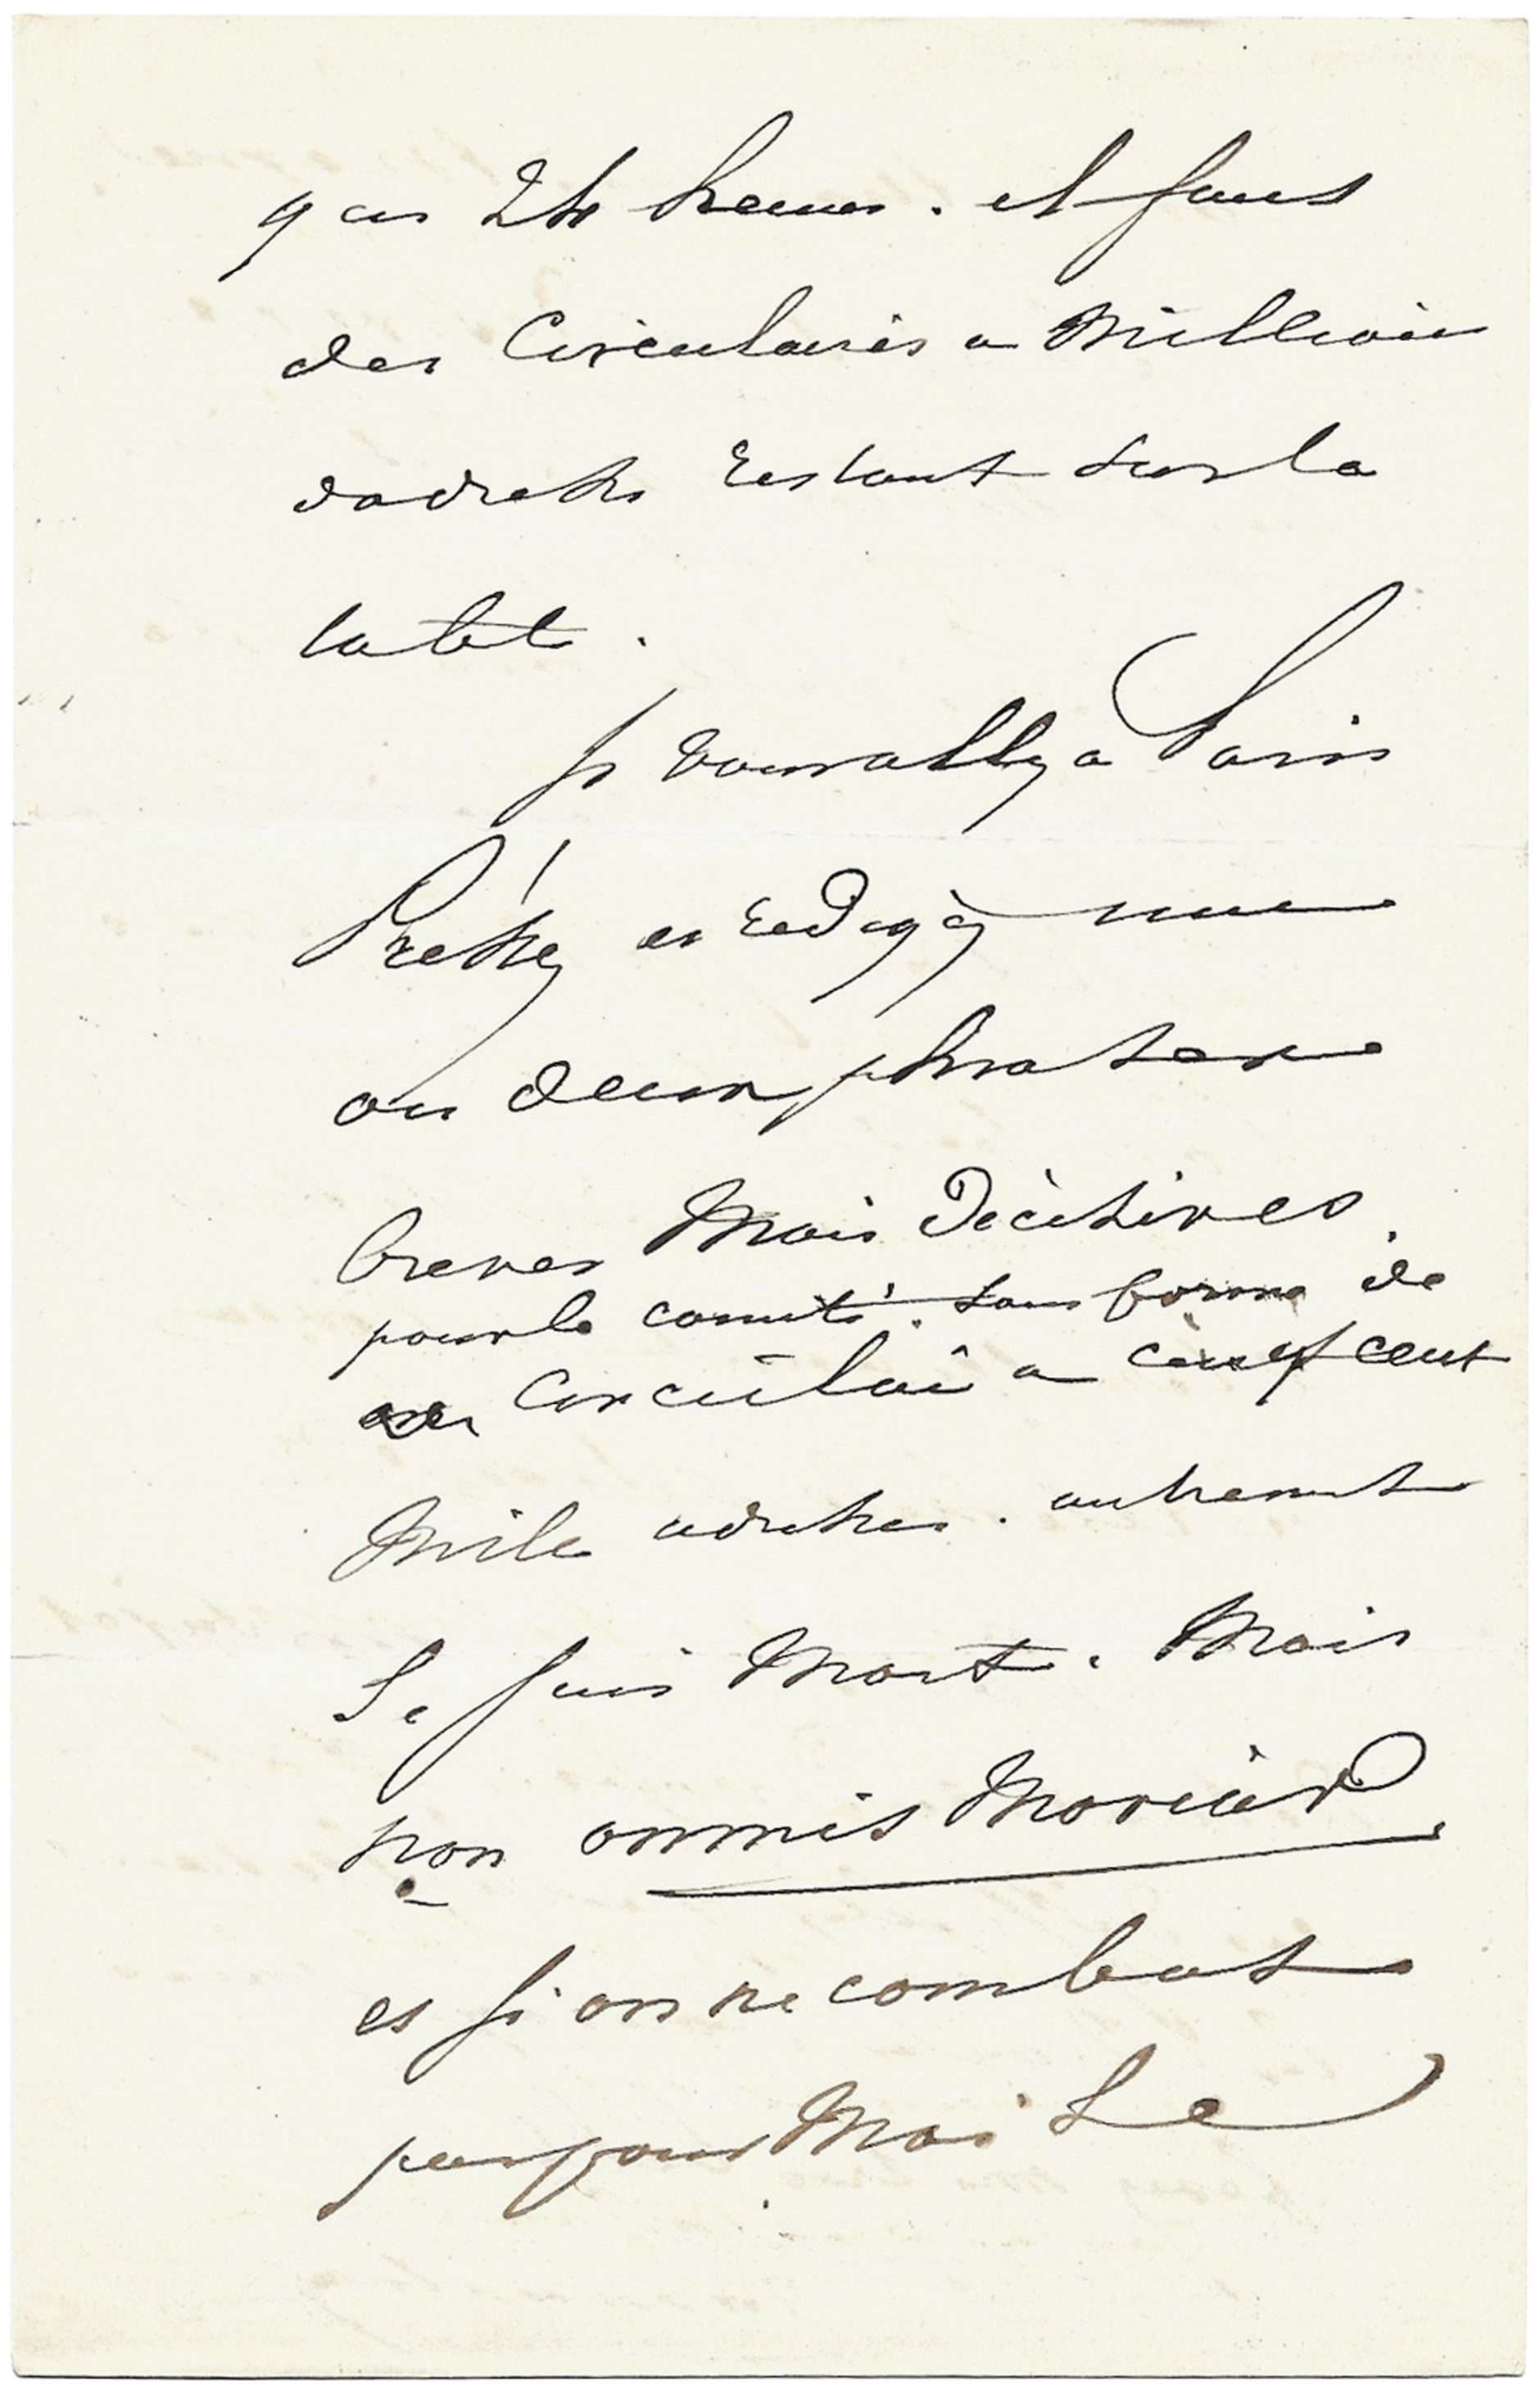 que 24 heures. il faut
des Circulaires a Million
dadresses restant sur la
table.
Si vous allez a Paris
Pressez et redigez une
ou deux phrases
breves Mais Décisives
pour le comité. sous forme de
Circulai a cinq cent
Mile adresses. autrement
Je suis Mort. Mais
non omnis Moriar
et si on ne combat
pas pour Moi Le